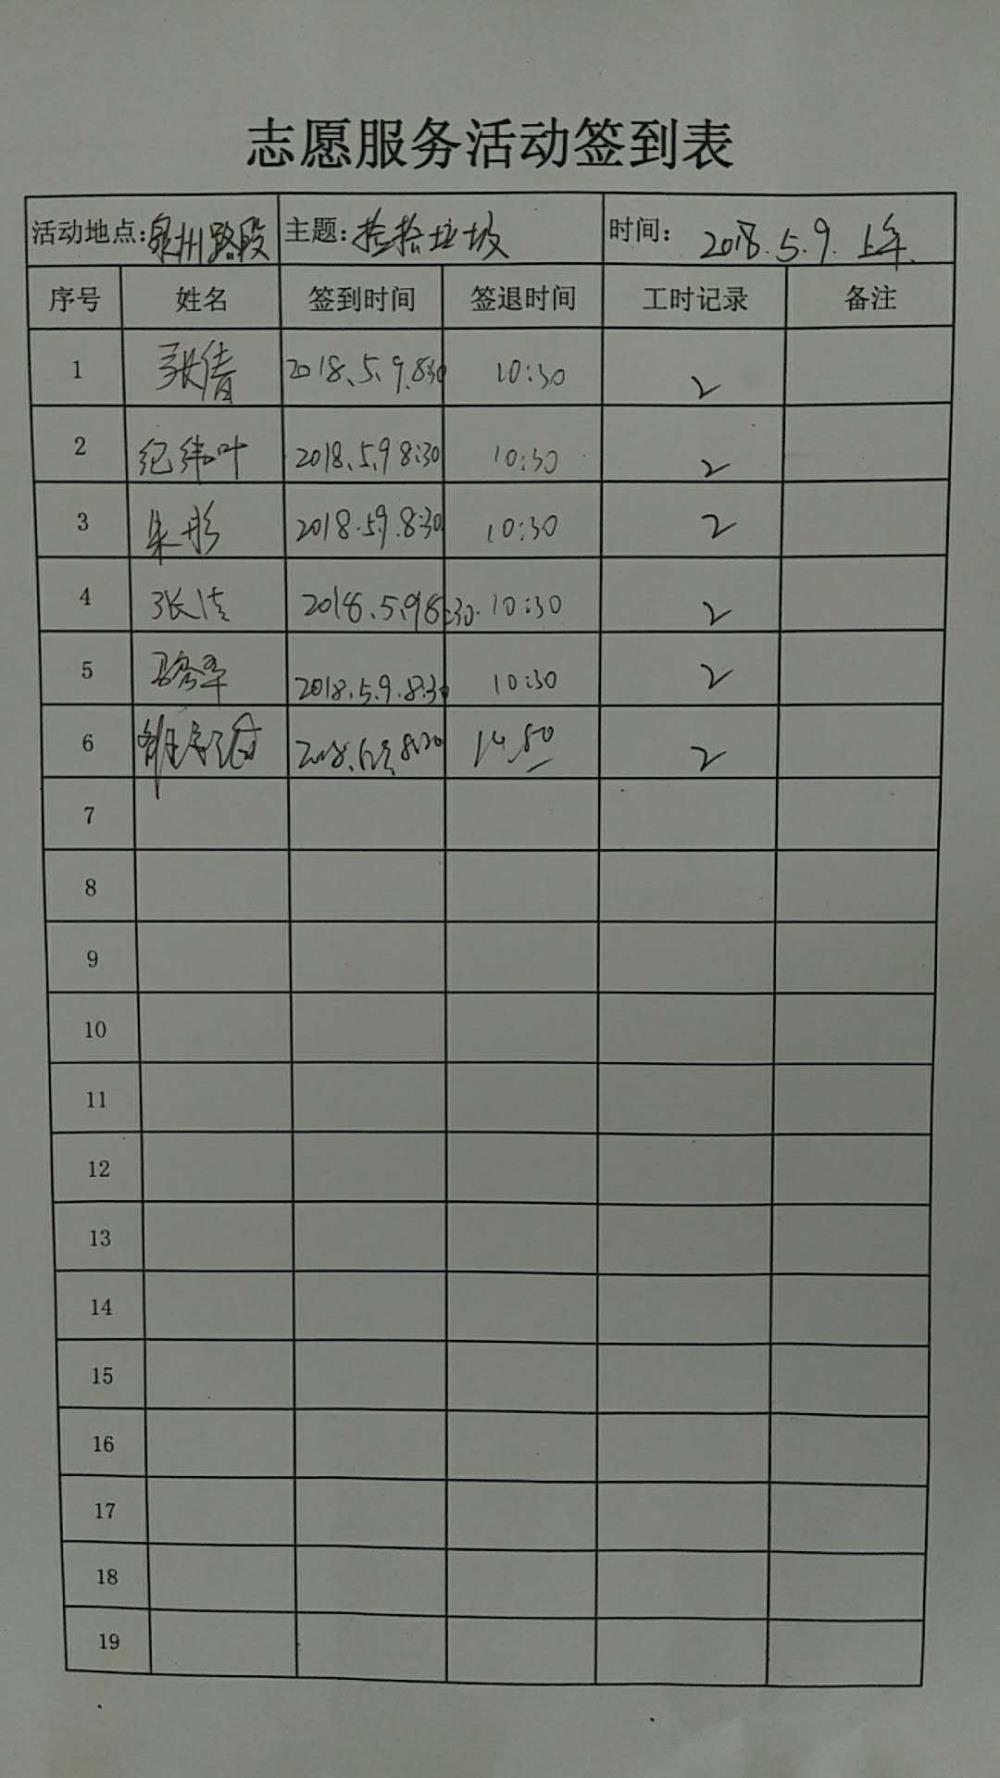 志愿服务活动签到表
活动地点:泉州路段 主题:捡拾垃圾 时间: 2018.5.9.上午.
序号 姓名 签到时间 签退时间 工时记录 备注
1 张倩 2018.5.9.8:30 10:30 2
2 纪纬叶 2018.5.9 8:30 10:30 2
3 朱彤 2018.5.9.8:30 10:30 2
4 张洁 2018.5.9 8:30. 10:30 2
5 2018.5.9.8:30 10:30 2
6 2
7
8
9
10
11
12
13
14
15
16
17
18
19